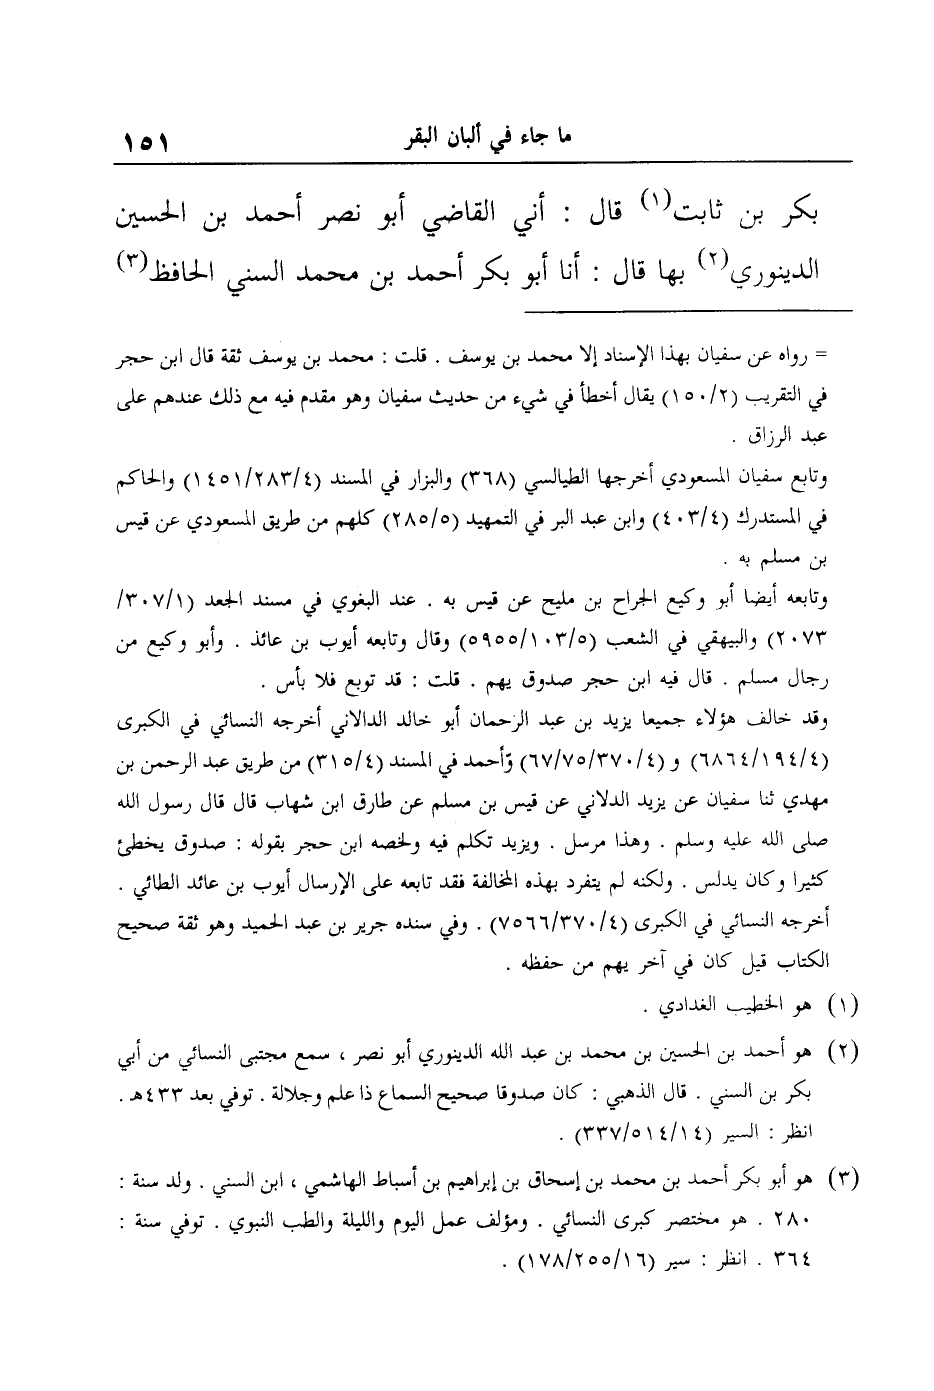 ما جاء في ألبان البقر ١٥١
بكر بن ثابت(١) قال : أني القاضي أبو نصر أحمد بن الحسين
الدينوري(٢) بها قال : أنا أبو بكر أحمد بن محمد السني الحافظ(٣)
= رواه عن سفيان بهذا الإسناد إلا محمد بن يوسف . قلت : محمد بن يوسف ثقة قال ابن حجر
في التقريب (١٥٠/٢) يقال أخطأ في شيء من حديث سفيان وهو مقدم فيه مع ذلك عندهم على
عبد الرزاق .
وتابع سفيان المسعودي أخرجها الطيالسي (٣٦٨) والبزار في المسند (١٤٥١/٢٨٣/٤) والحاكم
في المستدرك (٤٠٣/٤) وابن عبد البر في التمهيد (٢٨٥/٥) كلهم من طريق المسعودي عن قيس
بن مسلم به .
وتابعه أيضا أبو وكيع الجراح بن مليح عن قيس به . عند البغوي في مسند الجعد (٣٠٧/١/
٢٠٧٣) والبيهقي في الشعب (٥٩٥٥/١٠٣/٥) وقال وتابعه أيوب بن عائذ . وأبو وكيع من
رجال مسلم . قال فيه ابن حجر صدوق يهم . قلت : قد توبع فلا بأس .
وقد خالف هؤلاء جميعا يزيد بن عبد الرحمان أبو خالد الدالاني أخرجه النسائي في الكبرى
(٦٨٦٤/١٩٤/٤) و (٦٧/٧٥/٣٧٠/٤) وأحمد في المسند (٣١٥/٤) من طريق عبد الرحمن بن
مهدي ثنا سفيان عن يزيد الدلاني عن قيس بن مسلم عن طارق ابن شهاب قال قال رسول الله
صلى الله عليه وسلم . وهذا مرسل . ويزيد تكلم فيه ولخصه ابن حجر بقوله : صدوق يخطئ
كثيرا وكان يدلس . ولكنه لم يتفرد بهذه المخالفة فقد تابعه على الإرسال أيوب بن عائد الطائي .
أخرجه النسائي في الكبرى (٧٥٦٦/٣٧٠/٤) . وفي سنده جرير بن عبد الحميد وهو ثقة صحيح
الكتاب قيل كان في آخر يهم من حفظه .
(١) هو الخطيب الغدادي .
(٢) هو أحمد بن الحسين بن محمد بن عبد الله الدينوري أبو نصر ، سمع مجتبى النسائي من أبي
بكر بن السني . قال الذهبي : كان صدوقا صحيح السماع ذا علم وجلالة . توفي بعد ٤٣٣هـ .
انظر : السير (٣٣٧/٥١٤/١٤) .
(٣) هو أبو بكر أحمد بن محمد بن إسحاق بن إبراهيم بن أسباط الهاشمي ، ابن السني . ولد سنة :
٢٨٠ . هو مختصر كبرى النسائي . ومؤلف عمل اليوم والليلة والطب النبوي . توفي سنة :
٣٦٤ . انظر : سير (١٧٨/٢٥٥/١٦) .